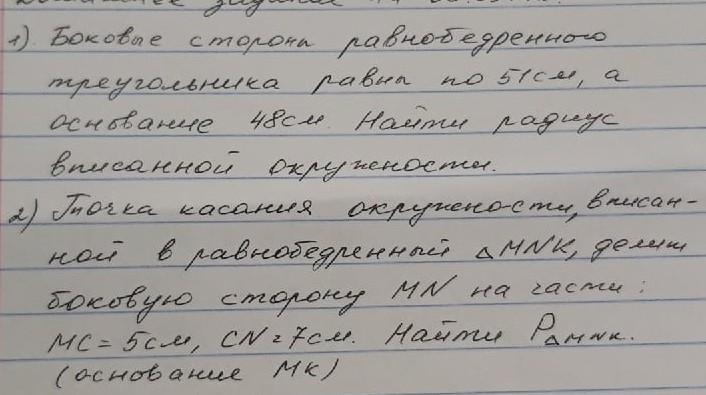 1). Боковые стороны равнобедренного
треугольника равны по 51см, а
основание 48см. Найти радиус
вписанной окружности.
2) Точка касания окружности, вписан-
ной в равнобедренный △MNK, делит
боковую сторону MN на части:
MC = 5см, CN = 7см. Найти P△MNK.
(основание MK)